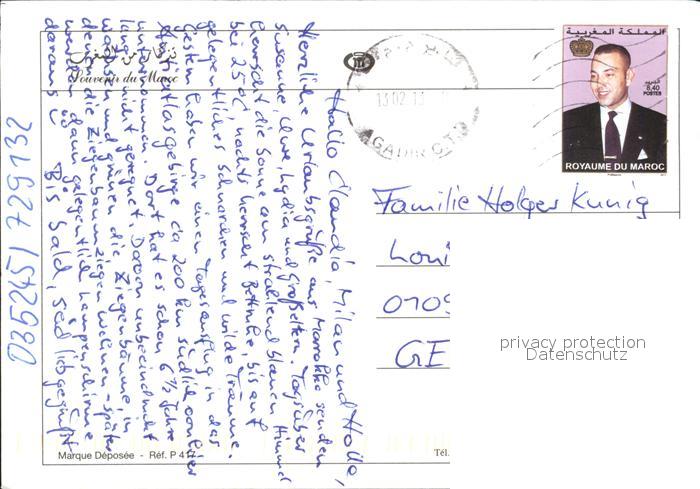 تذكار من المغرب
Souvenir du Maroc
Hallo Claudia, Milan und Holle,
Herzliche Urlaubsgrüße aus Marokko senden
Susanne, Uwe, Lydia und Großeltern. Tagsüber
herrscht die Sonne am strahlend blauen Himmel
bei 25°C, nachts herrscht Bettruhe, bis auf
gelegentliches Schnarchen und wilde Träume.
Gestern haben wir einen Tagesausflug in das
Atlasgebirge ca 200 km südlich von hier
unternommen. Dort hat es schon 6 ½ Jahre
lang nicht geregnet. Davon unbeeindruckt
wachsen und grünen die Ziegenbäume, in
denen die Ziegenbaumziegen wohnen - später
werden dann gelegentlich Lampenschirme
daraus. Bis bald, seid lieb gegrüßt
035245/729132
13.02.13
AGADIR C.T.D
المملكة المغربية
البريد
8,40
POSTES
ROYAUME DU MAROC
Familie Holger Kunig
Loui
0109
GE
privacy protection
Datenschutz
Marque Déposée - Réf. P 417
Tél.